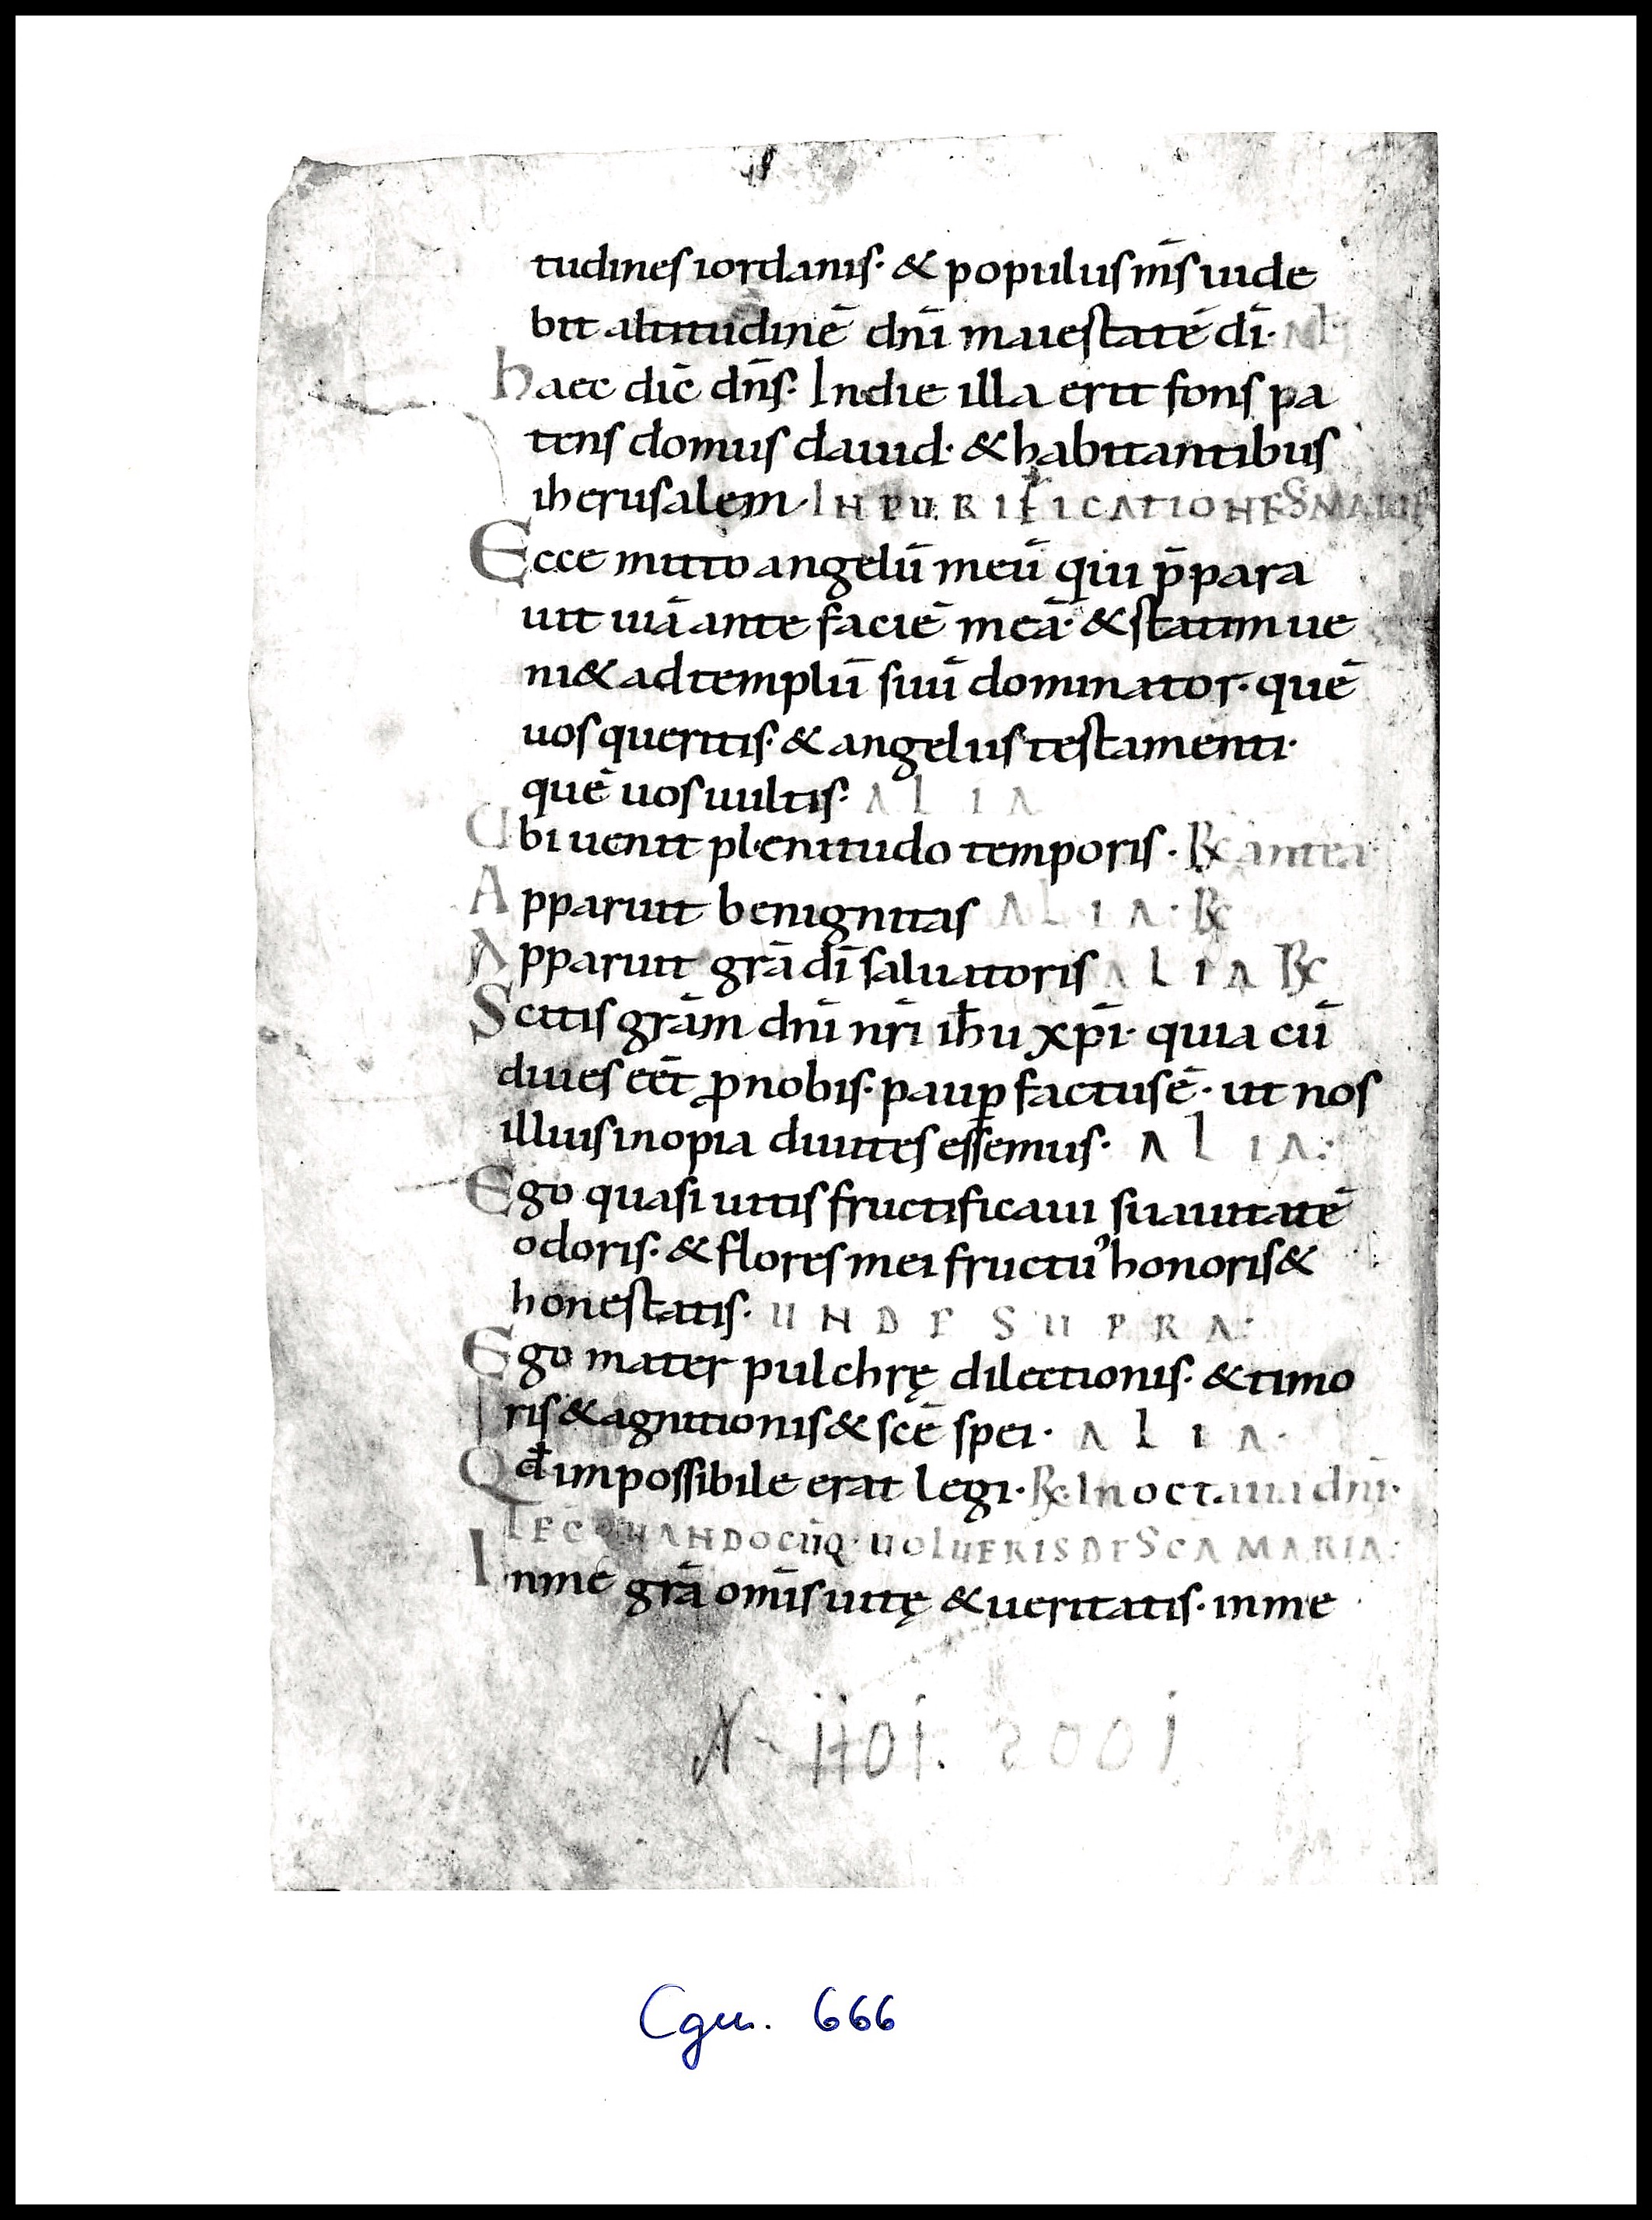 tudines iordanis· & populus m̄s uide
bit altitudinē dn̄i maiestatē dī·
haec dic̄ dn̄s· In die illa erit fons pa
tens domus dauid· & habitantibus
iherusalem· IN PURIFICATIONE S MARIE
Ecce mitto angelū meū qui p̄para
uit uiā ante faciē meā· & statim ue
ni& ad templū suū dominator· quē
uos queritis· & angelus testamenti·
quē uos uultis· ALIA
Ubi uenit plenitudo temporis· R᷒ antea
Apparuit benignitas ALIA· R᷒
Apparuit grā dī saluatoris ALIA R᷒
Scitis grām dn̄i nr̄i ih̄u xp̄i· quia cū
diues eēt ꝓ nobis· paup̱ factus ē· ut nos
illius inopia diuites essemus· ALIA:
Ego quasi uitis fructificaui suauitatē
odoris· & flores mei fructu' honoris &
honestatis· UNDE SUPRA:
Ego mater pulchrę dilectionis· & timo
ris & agnitionis & scē spei· ALIA·
Qđ impossibile erat legi· R᷒· In octaua dn̄i·
LEC QUANDOCŪQ· UOLUERIS DE SCA MARIA:
In me grā om̄is uitę & ueritatis· in me
N 1101. 2001
Cgm. 666